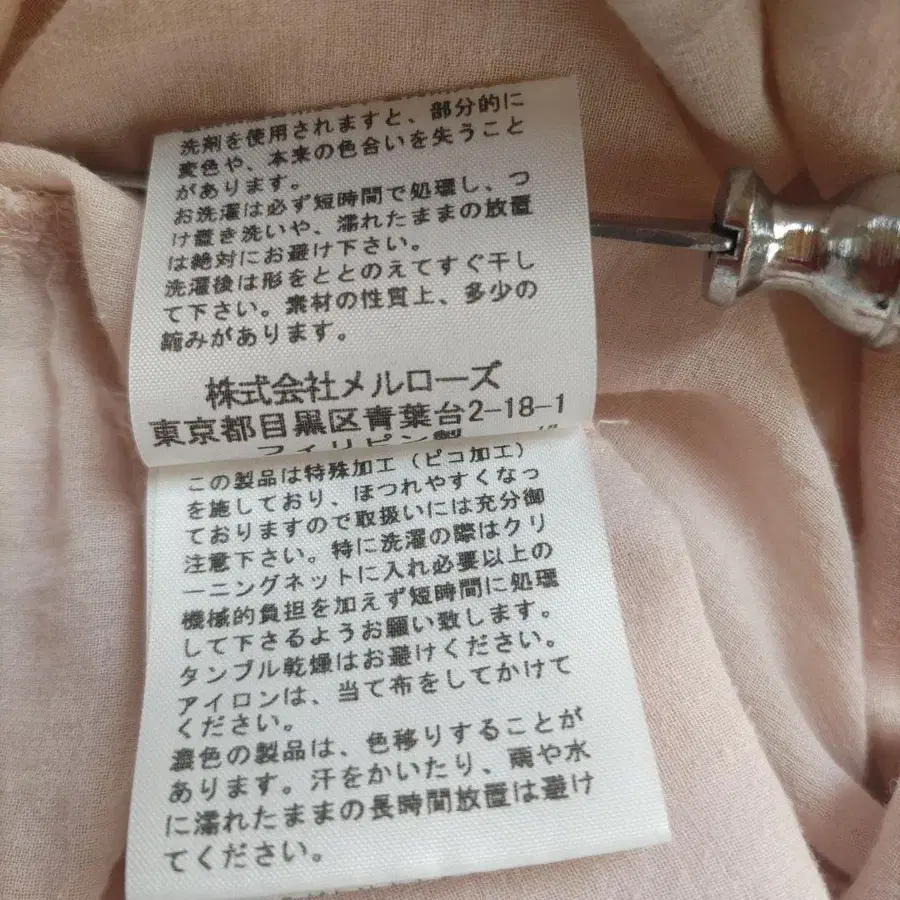 洗剤を使用されますと、部分的に
変色や、本来の色合いを失うこと
があります。
お洗濯は必ず短時間で処理し、つ
け置き洗いや、濡れたままの放置
は絶対にお避け下さい。
洗濯後は形をととのえてすぐ干し
て下さい。素材の性質上、多少の
縮みがあります。
株式会社メルローズ
東京都目黒区青葉台2-18-1
フィリピン製
この製品は特殊加工（ピコ加工）
を施しており、ほつれやすくなっ
ておりますので取扱いには充分御
注意下さい。特に洗濯の際はクリ
ーニングネットに入れ必要以上の
機械的負担を加えず短時間に処理
して下さるようお願い致します。
タンブル乾燥はお避けください。
アイロンは、当て布をしてかけて
ください。
濃色の製品は、色移りすることが
あります。汗をかいたり、雨や水
に濡れたままの長時間放置は避け
てください。